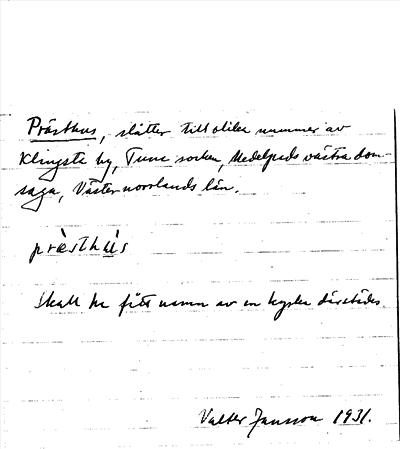 Prästhus, slåtter till olika nummer av
Klingsta by, Tuna socken, Medelpads västra dom-
saga, Västernorrlands län.
præ̀sthùs
Skall ha fått namn av en kyrka därstädes.
Valter Jansson 1931.